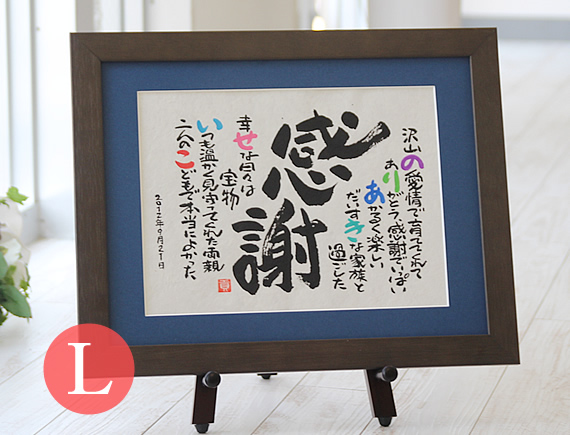 沢山の愛情で育ててくれて
ありがとう感謝でいっぱい
あかるく楽しい
だいすきな家族と
過ごした
感謝
幸せな日々は
宝物
いつも温かく見守ってくれた両親
二人のこどもで本当によかった
2012年9月21日
L